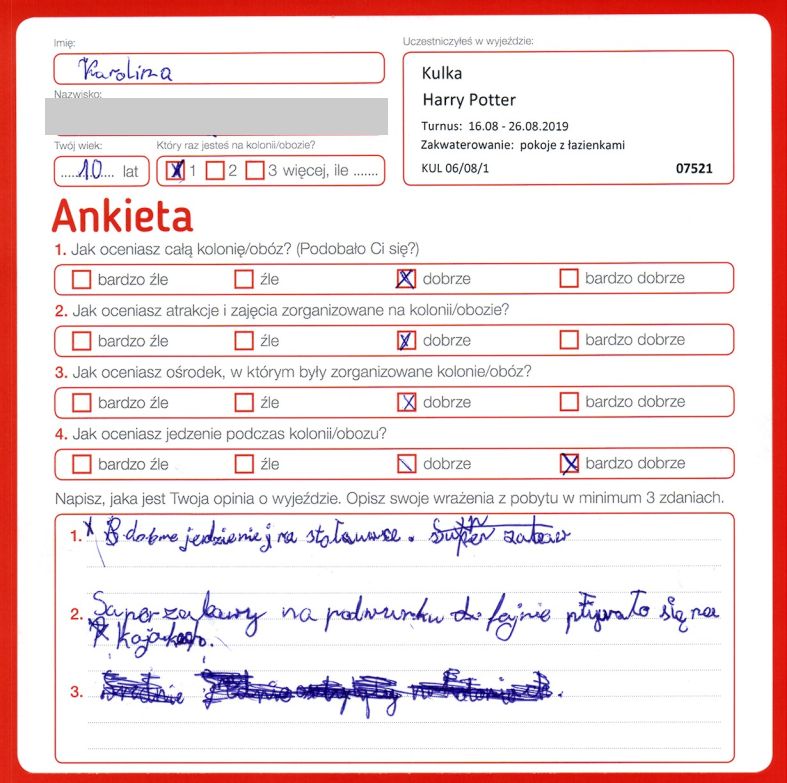 Imię:
Uczestniczyłeś w wyjeździe:
Karolina
Kulka
Harry Potter
Nazwisko:
Turnus: 16.08 - 26.08.2019
Zakwaterowanie: pokoje z łazienkami
KUL 06/08/1 07521
Twój wiek:
Który raz jesteś na kolonii/obozie?
.....10.... lat
X 1 2 3 więcej, ile .......
Ankieta
1. Jak oceniasz całą kolonię/obóz? (Podobało Ci się?)
bardzo źle źle X dobrze bardzo dobrze
2. Jak oceniasz atrakcje i zajęcia zorganizowane na kolonii/obozie?
bardzo źle źle X dobrze bardzo dobrze
3. Jak oceniasz ośrodek, w którym były zorganizowane kolonie/obóz?
bardzo źle źle X dobrze bardzo dobrze
4. Jak oceniasz jedzenie podczas kolonii/obozu?
bardzo źle źle dobrze X bardzo dobrze
Napisz, jaka jest Twoja opinia o wyjeździe. Opisz swoje wrażenia z pobytu w minimum 3 zdaniach.
1. dobre na . Super
2. Super zabawy na fajnie pływało się na
3.